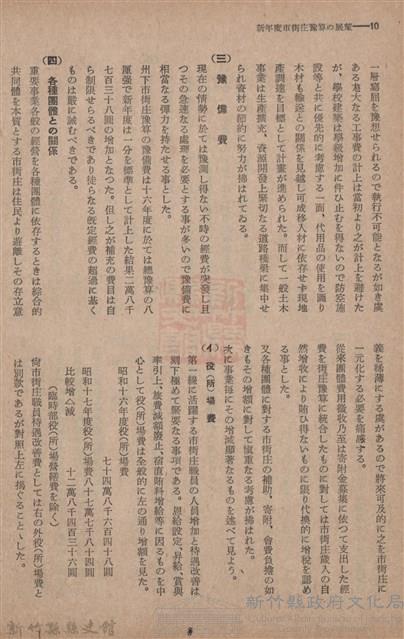 新年度市街庄豫算の展望――10
一層窮屈を豫想せられるので執行不可能となるが如き虞
ある尨大なる工事費の計上は當初より之が計上を避けた
が、學校建築は學級增加に件ひ止むを得ないので防空施
設等と共に優先的に考慮する一面、代用品の使用を圖り
木材も輸送との關係を見越し可成移入材に依存せず現地
產調達を目標として計畫が進められた。而して一般土木
事業は生產擴充、資源開發上緊切なる道路橋梁に集中せ
られ資材の節約に努力が拂はれてゐる。
(三) 豫備費
現在の情勢に於ては豫測し得ない不時の經費が突發し且
つその急速なる處理を必要とする事が多いので豫備費に
相當なる彈力を持たせる事とした。
州下市街庄豫算の豫備費は十六年度に於ては總豫算の八
厘强で新年度は一分を標準として計上した結果二萬八千
七百三十八圓の增加となつた。但し之が補充の費目は自
ら制限せらるべきであり徒らなる旣定經費の超過に基く
ものは嚴に誡むべきである。
(四) 各種團體との關係
重要事業各般の經營を各種團體に依存するときは綜合的
共同體を本質とする市街庄は住民より遊離しその存立意
義を稀薄にする處があるので將來可及的に之を市街庄に
一元化する必要を痛感する。
從來團體費用徵收乃至は寄附金募集に依つて支出した經
費を市街庄豫算に統合したものに對しては市街庄歲入の自
然增收により賄ひ得ないものに限り代換的に增稅を認め
る事とした。
又各種團體に對する市街庄の補助、寄附、會費負擔の如
きもその增額に對して愼重なる考慮が拂はれた。
次に事業每にその增減顯著なるものを述べて見よう。
(イ) 役(所)場費
第一線に活躍する市街庄職員の人員增加と待遇改善は
刻下極めて緊要なる事項である。恩給設定、昇給、賞與
牽引上、旅費減額廢止、宿直賄料增給等に因るものを中
心として役(所)場費は全般的に左の通り增額を見た。
昭和十六年度役(所)場費 七十四萬八千六百四十八圓
昭和十七年度役(所)場費八十七萬七千八十四圓
比較增△減 十二萬八千四百三十六圓
(臨時部役(所)場營經費を除く)
尙市街庄職員待遇改善費としては右の外役(所)場費と
は別款であるが對照上左に揭ぐることゝした。
新竹縣政府文化局
新竹縣縣史館